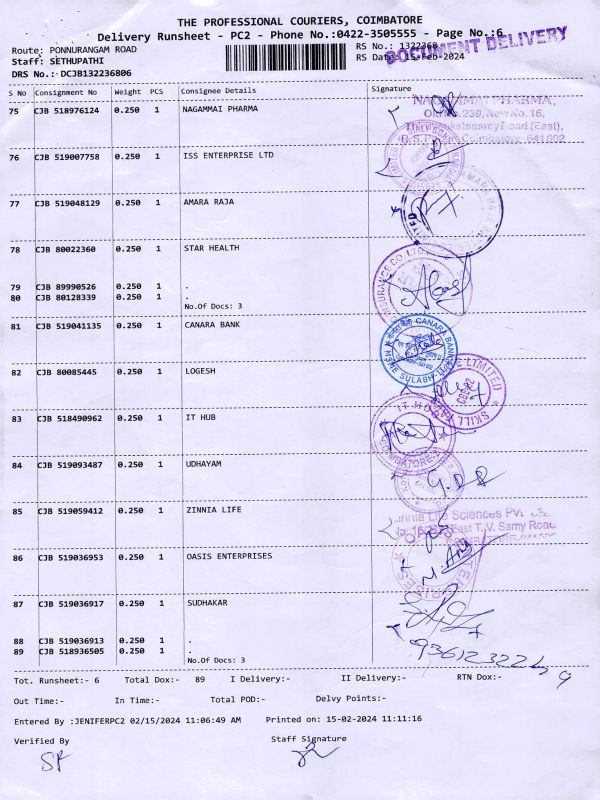 THE PROFESSIONAL COURIERS, COIMBATORE
Delivery Runsheet - PC2 - Phone No.:0422-3505555 - Page No.:6
Route: PONNURANGAM ROAD
RS No.: 1322368
DOCUMENT DELIVERY
Staff: SETHUPATHI
RS Date: 15-Feb-2024
DRS No.: DCJB132236806
S No Consignment No Weight PCS Consignee Details Signature
75 CJB 518976124 0.250 1 NAGAMMAI PHARMA
NAGAMMAI PHARMA,
Old No.239, New No.16,
76 CJB 519007758 0.250 1 ISS ENTERPRISE LTD
77 CJB 519048129 0.250 1 AMARA RAJA
78 CJB 80022360 0.250 1 STAR HEALTH
79 CJB 89990526 0.250 1 .
80 CJB 80128339 0.250 1 .
No.Of Docs: 3
INSURANCE CO. LTD.
81 CJB 519041135 0.250 1 CANARA BANK
CANARA BANK
82 CJB 80085445 0.250 1 LOGESH
LIMITED
SKILL
83 CJB 518490962 0.250 1 IT HUB
IT HUB
COIMBATORE
84 CJB 519093487 0.250 1 UDHAYAM
85 CJB 519059412 0.250 1 ZINNIA LIFE
Life Sciences Pvt
East T.V. Samy Road
86 CJB 519036953 0.250 1 OASIS ENTERPRISES
87 CJB 519036917 0.250 1 SUDHAKAR
88 CJB 519036913 0.250 1 .
89 CJB 518936505 0.250 1 .
No.Of Docs: 3
Tot. Runsheet:- 6 Total Dox:- 89 I Delivery:- II Delivery:- RTN Dox:- 9
Out Time:- In Time:- Total POD:- Delvy Points:-
Entered By :JENIFERPC2 02/15/2024 11:06:49 AM Printed on: 15-02-2024 11:11:16
Verified By Staff Signature